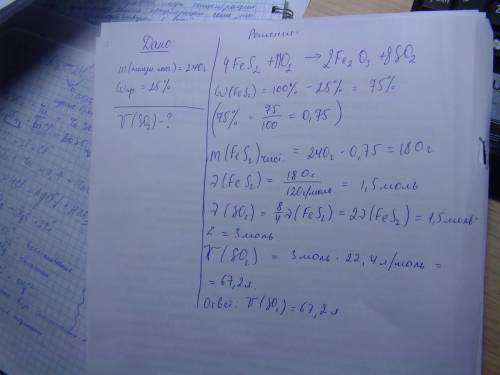 Дано
m(                ) = 240г
ωпр. = 25%
V(SO₂) - ?
Решение:
4FeS₂ + 11O₂ → 2Fe₂O₃ + 8SO₂
ω(FeS₂) = 100% - 25% = 75%
(75% = 75/100 = 0,75)
m(FeS₂)чист. = 240г · 0,75 = 180г
ν(FeS₂) = 180г/120г/моль = 1,5моль
ν(SO₂) = 8/4 ν(FeS₂) = 2ν(FeS₂) = 1,5моль·
2 = 3моль
V(SO₂) = 3моль · 22,4л/моль =
= 67,2л
Ответ: V(SO₂) = 67,2л